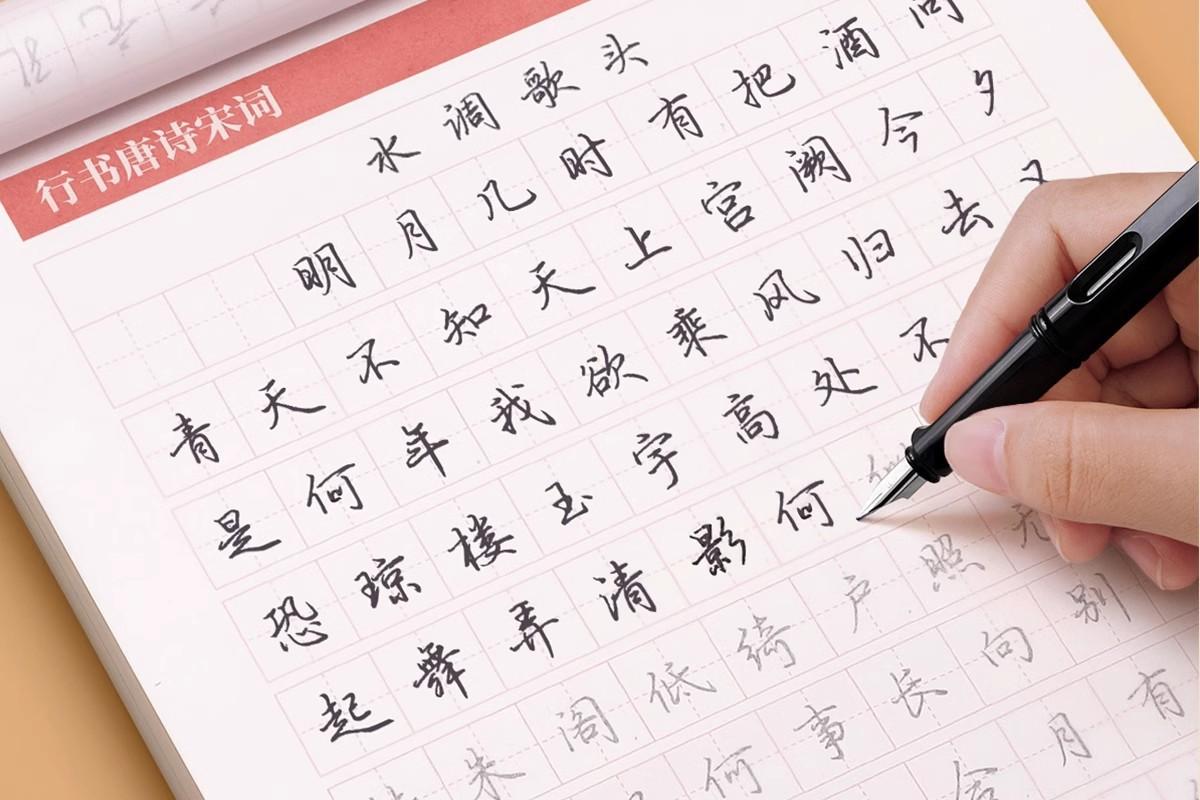 行书唐诗宋词
水调歌头
明月几时有把酒问
青天不知天上宫阙今夕
是何年我欲乘风归去
恐琼楼玉宇高处不
起舞弄清影何
朱阁低绮户照无
何事长向别
月有